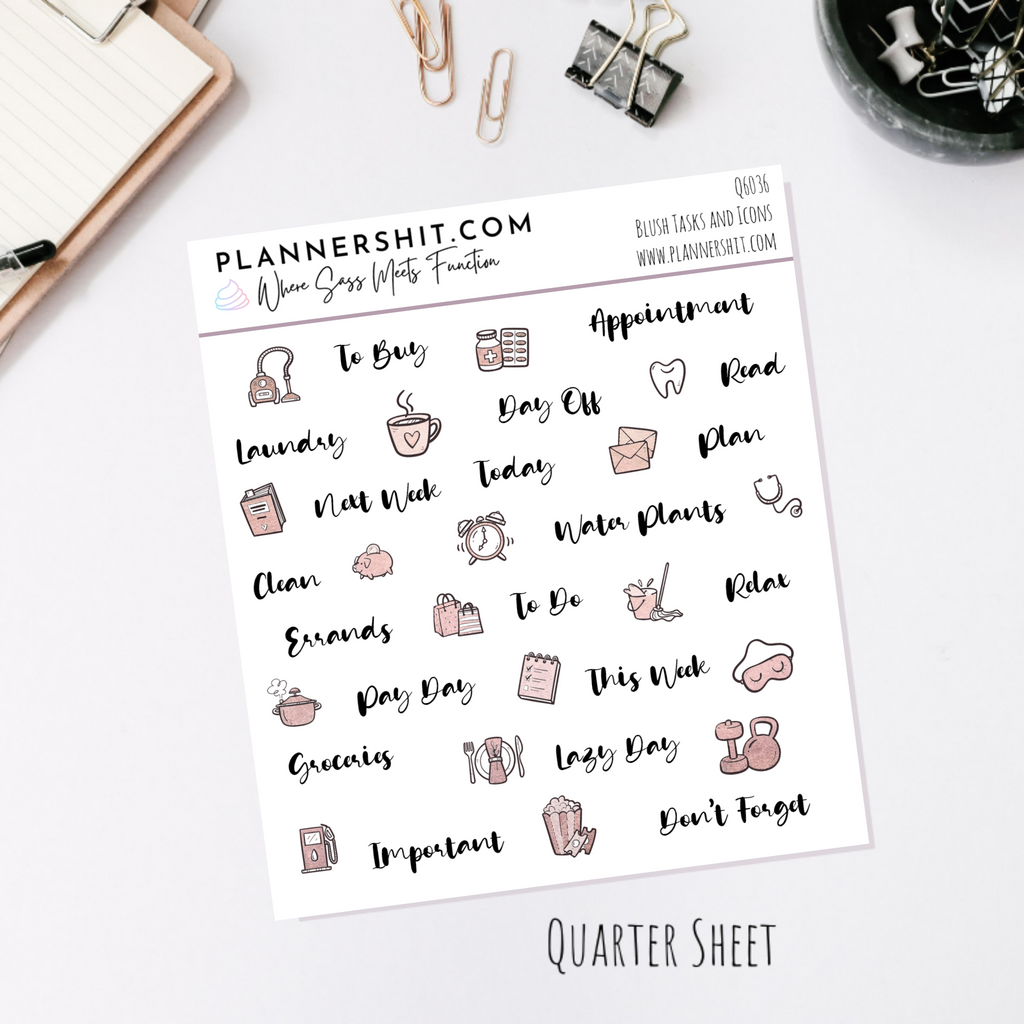 PLANNERSHIT.COM
Where Sass Meets Function
Q6036
Blush Tasks and Icons
www.plannershit.com
To Buy
Appointment
Read
Day Off
Laundry
Plan
Today
Next Week
Water Plants
Clean
Relax
To Do
Errands
This Week
Pay Day
Lazy Day
Groceries
Don't Forget
Important
Quarter Sheet